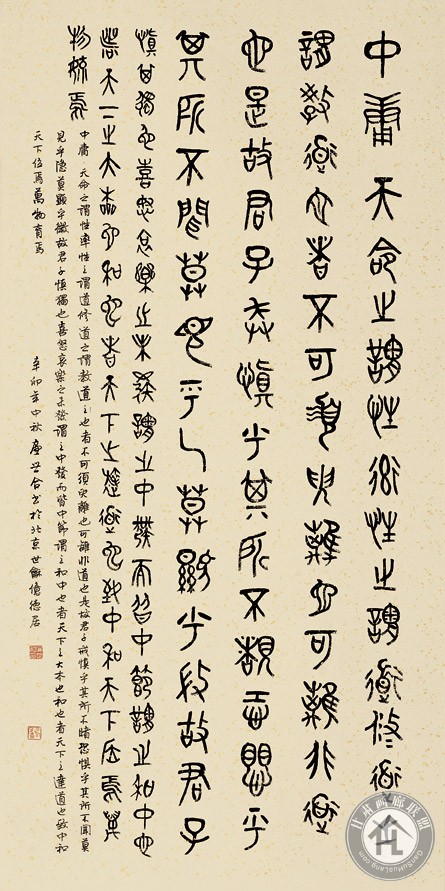 中庸天命之謂性率性之謂道修道之
謂教道也者不可須臾離也可離非道
也是故君子戒慎乎其所不睹恐懼乎
其所不聞莫見乎隱莫顯乎微故君子
慎其獨也喜怒哀樂之未發謂之中發而皆中節謂之和中也
者天下之大本也和也者天下之達道也致中和天下位焉萬
物育焉
中庸 天命之謂性率性之謂道修道之謂教道之也者不可須臾離也可離非道也是故君子戒慎乎其所不睹恐惧乎其所不聞莫
見乎隱莫顯乎微故君子慎獨也喜怒哀樂之未發謂之中發而皆中節謂之和中也者天下之大本也和也者天下之達道也致中和
天下位焉萬物育焉
辛卯年中秋世合书於北京世龢億德居
甘肃画廊联盟
GanSuHuaLang.com